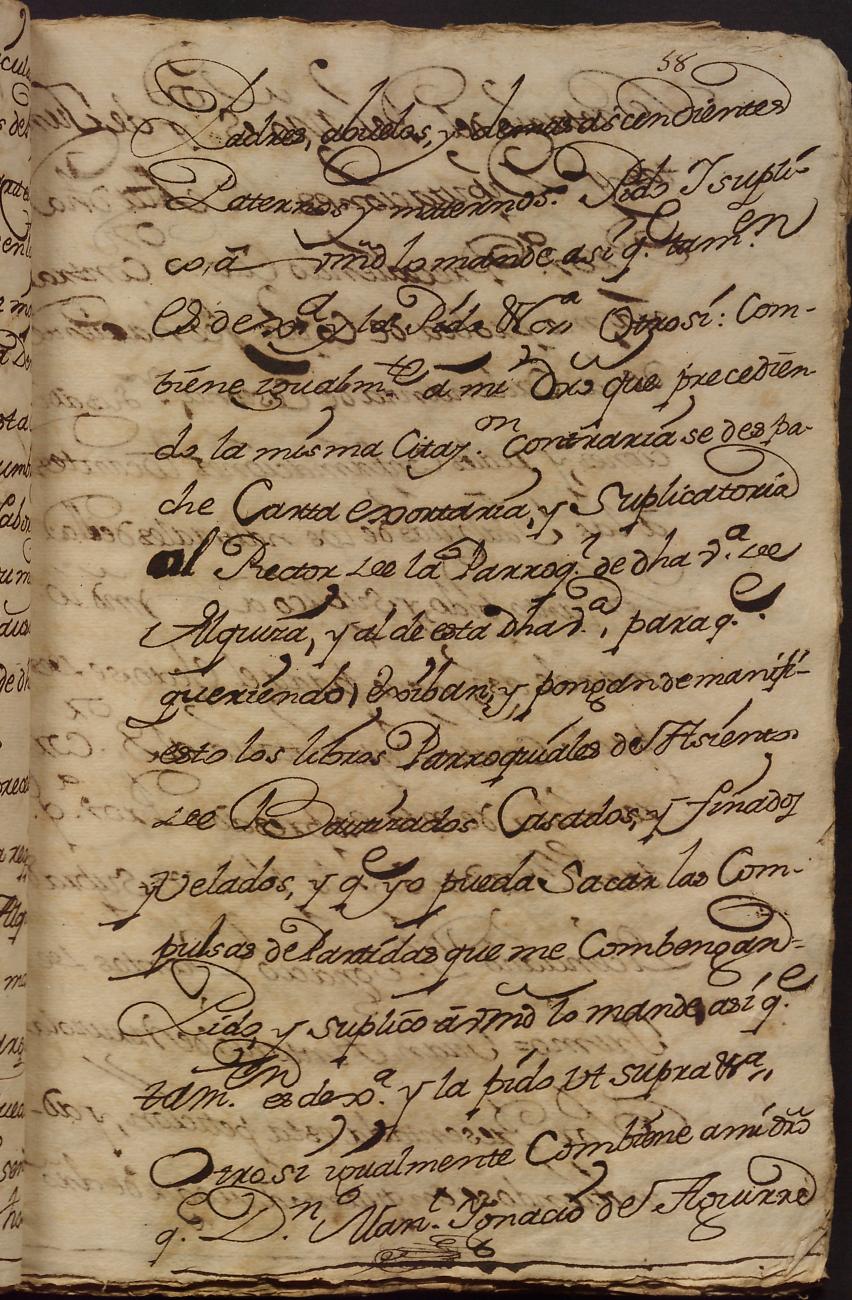 58
Padres, abuelos, y demas ascendientes
Paternos y maternos. Pido I supli-
co, â vmd lo mande asi q.e tam.en
es de xa. y la Pido Vt sa Otrosi: Com-
biene igualm.te â mi Dro que precedien-
do la misma Citaz.on contraria se despa-
che Carta exortaria, y Suplicatoria
al Rector de la Parroq.l de dha v.a de
Alquiza, y al de esta dha v.a, para q.e
queriendo, exiban, y, pongan de manifi-
esto los libros Parroquiales de Asiento
de Bautizados Casados, y finados
y Velados, y q.e yo pueda Sacar las Com-
pulsas de Partidas que me Combengan=
Pido, y suplico â vmd lo mande asi q.e
tam.en es de xa. y la pido vt supra
Otro si igualmente Combiene a mi dro
q.e D.n Man.l Ignacio de Aguirre